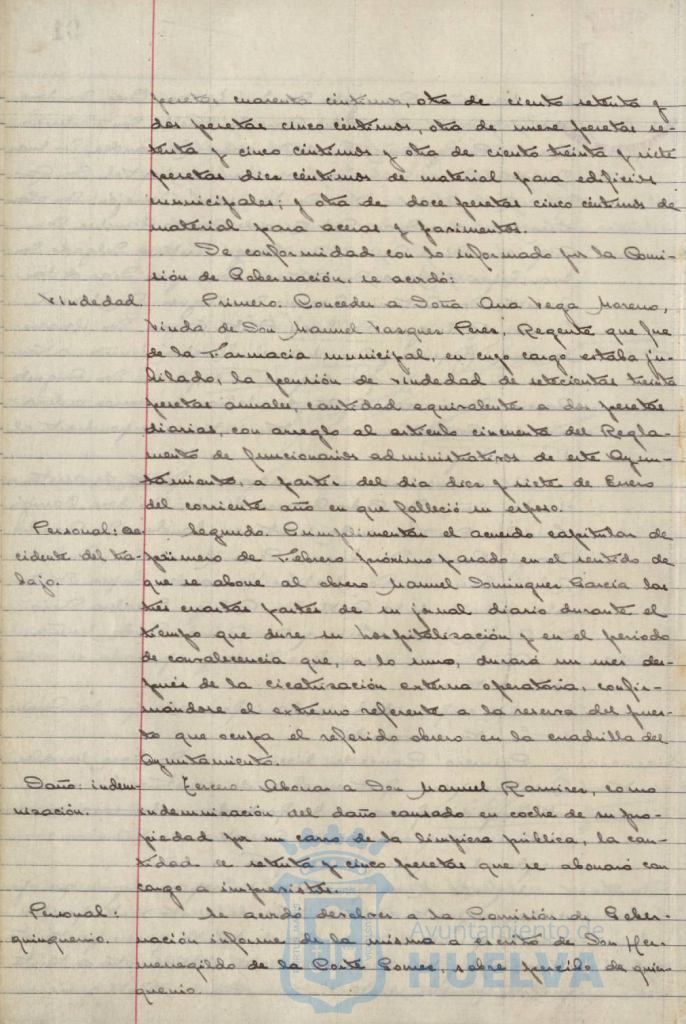 pesetas cuarenta céntimos, otra de ciento setenta y
dos pesetas cinco céntimos, otra de nueve pesetas se-
tenta y cinco céntimos y otra de ciento treinta y siete
pesetas diez céntimos de material para edificios
municipales; y otra de doce pesetas cinco céntimos de
material para aceras y pavimentos.
De conformidad con lo informado por la Comi-
sión de Gobernación, se acordó:
Viudedad. Primero. Conceder a Doña Ana Vega Moreno,
viuda de Don Manuel Vasquez Perez, Regente que fue
de la Farmacia municipal, en cuyo cargo estaba ju-
bilado, la pensión de viudedad de setecientas treinta
pesetas anuales, cantidad equivalente a dos pesetas
diarias, con arreglo al artículo cincuenta del Regla-
mento de funcionarios administrativos de este Ayun-
tamiento, a partir del dia diez y siete de Enero
del corriente año en que falleció su esposo.
Personal: ac- Segundo. Cumplimentar el acuerdo capitular de
cidente del tra- primero de Febrero próximo pasado en el sentido de
bajo. que se abone al obrero Manuel Dominguez García las
tres cuartas partes de su jornal diario durante el
tiempo que dure su hospitalización y en el periodo
de convalecencia que, a lo sumo, durará un mes des-
pués de la cicatrización externa operatoria, confir-
mándose el extremo referente a la reserva del pues-
to que ocupa el referido obrero en la cuadrilla del
Ayuntamiento.
Daño: indem- Tercero. Abonar a Don Manuel Ramirez, como
nización. indemnización del daño causado en coche de su pro-
piedad por un carro de la limpieza pública, la can-
tidad de setenta y cinco pesetas que se abonará con
cargo a imprevistos.
Personal: Se acordó devolver a la Comisión de Gober-
quinquenio. nación informe de la misma a escrito de Don Her-
menegildo de la Corte Gomez, sobre percibo de quin-
quenio.
Ayuntamiento de
HUELVA